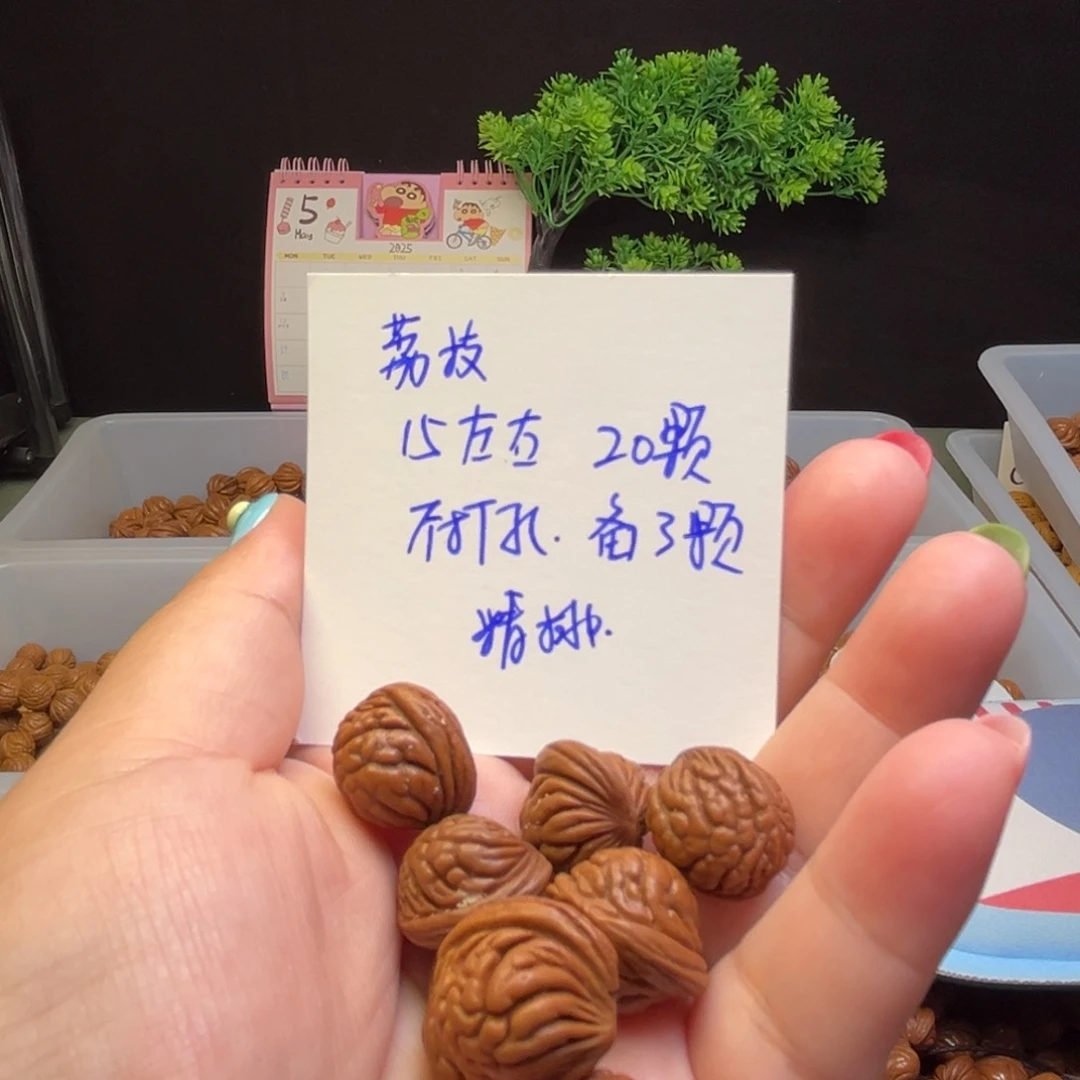 5
May
2025
MON TUE WED THU FRI SAT SUN
荔枝
15左右 20颗
不打孔. 备3颗
精排.